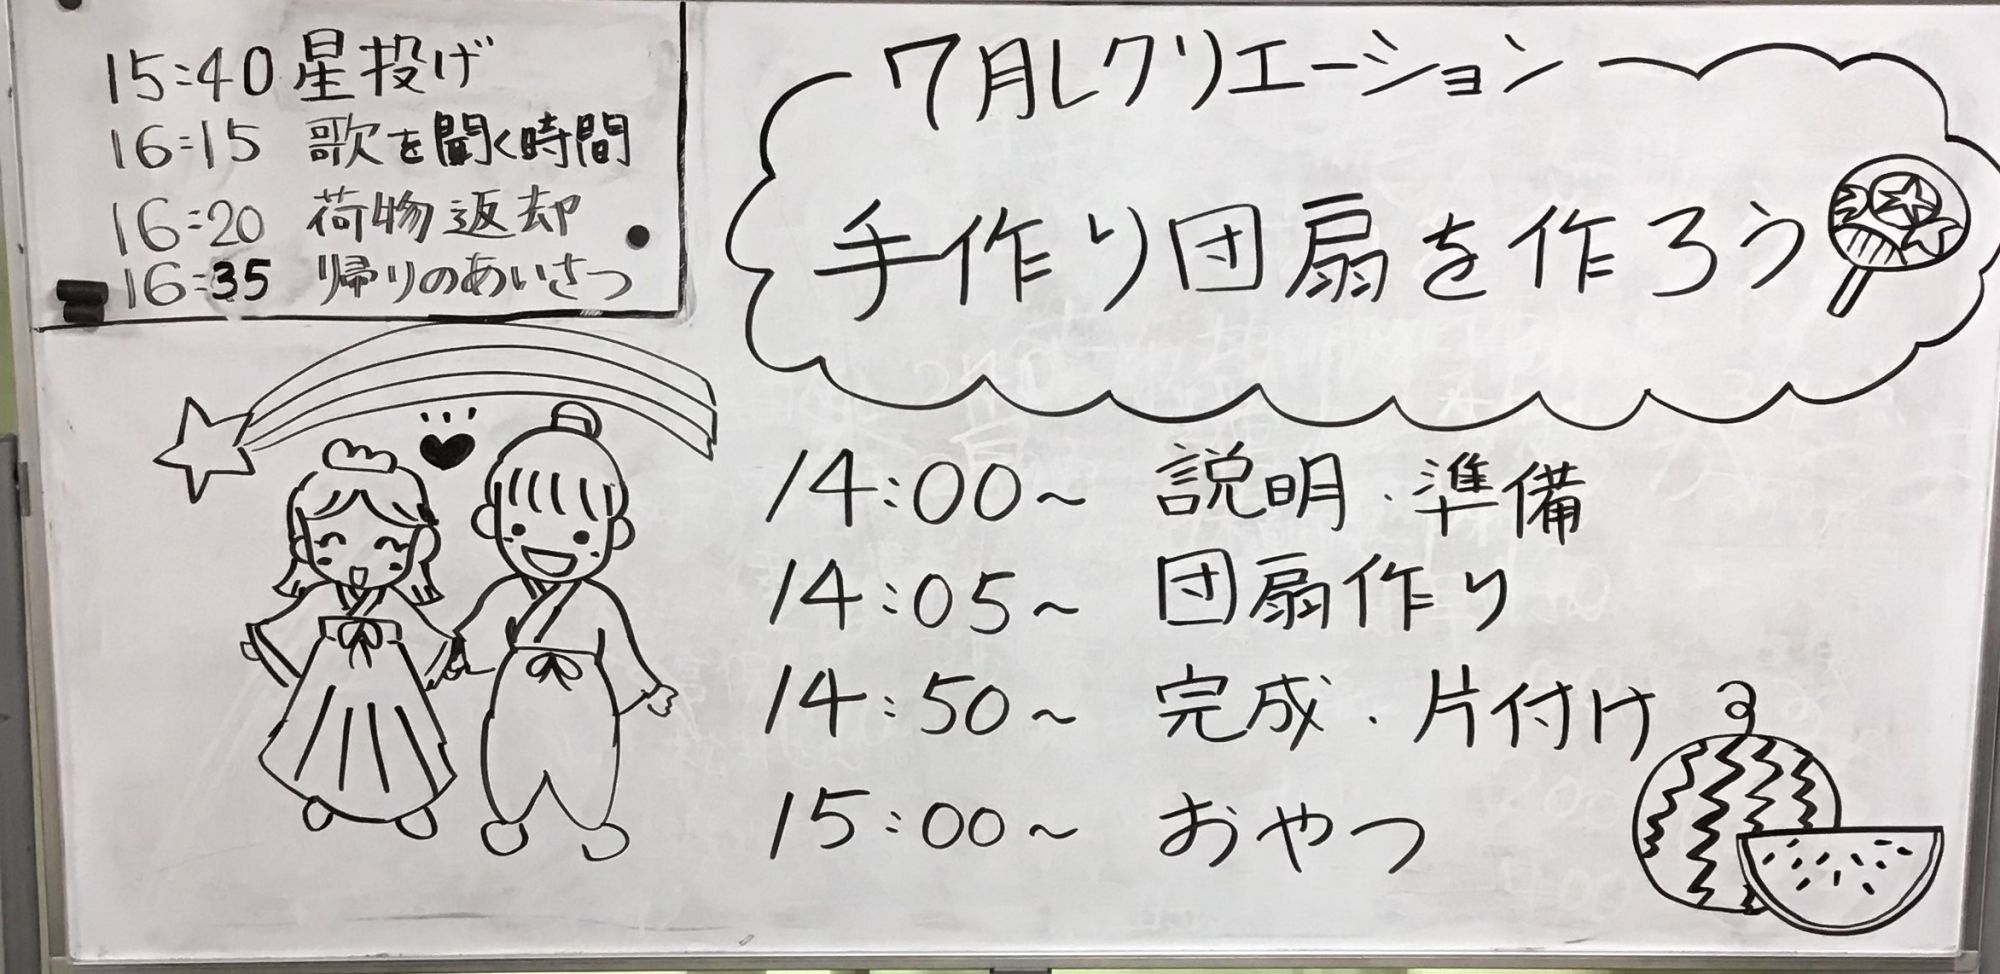 15:40 星投げ
16:15 歌を聞く時間
16:20 荷物返却
16:35 帰りのあいさつ
7月レクリエーション
手作り団扇を作ろう
14:00～ 説明・準備
14:05～ 団扇作り
14:50～ 完成・片付け
15:00～ おやつ